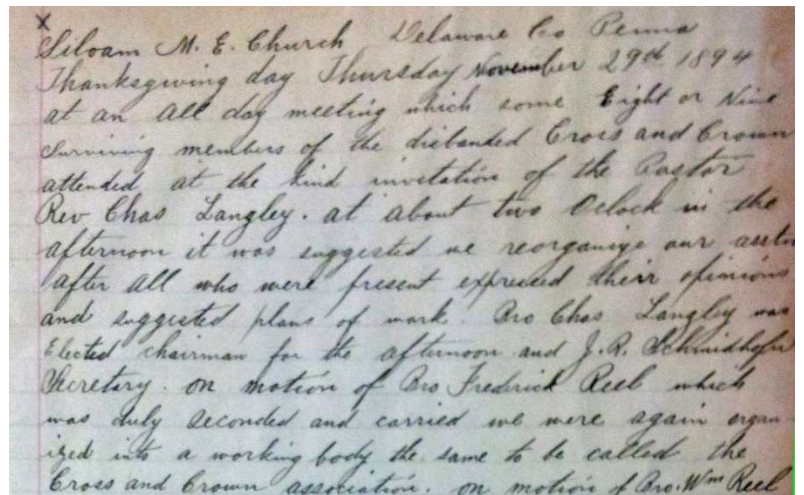 x
Siloam M. E. Church Delaware Co Penna
Thanksgiving day Thursday November 29th 1894
at an all day meeting which some Eight or Nine
surviving members of the disbanded Cross and Crown
attended at the kind invitation of the Pastor
Rev Chas Langley. at about two Oclock in the
afternoon it was suggested we reorganize our asstn
after all who were present expressed their opinions
and suggested plans of work. Bro Chas Langley was
Elected chairman for the afternoon and J. R. Schmidhofer
Secretary. on motion of Bro Fredrick Reel which
was duly seconded and carried we were again organ-
ized into a working body the same to be called the
Cross and Crown association. on motion of Bro. Wm Reel